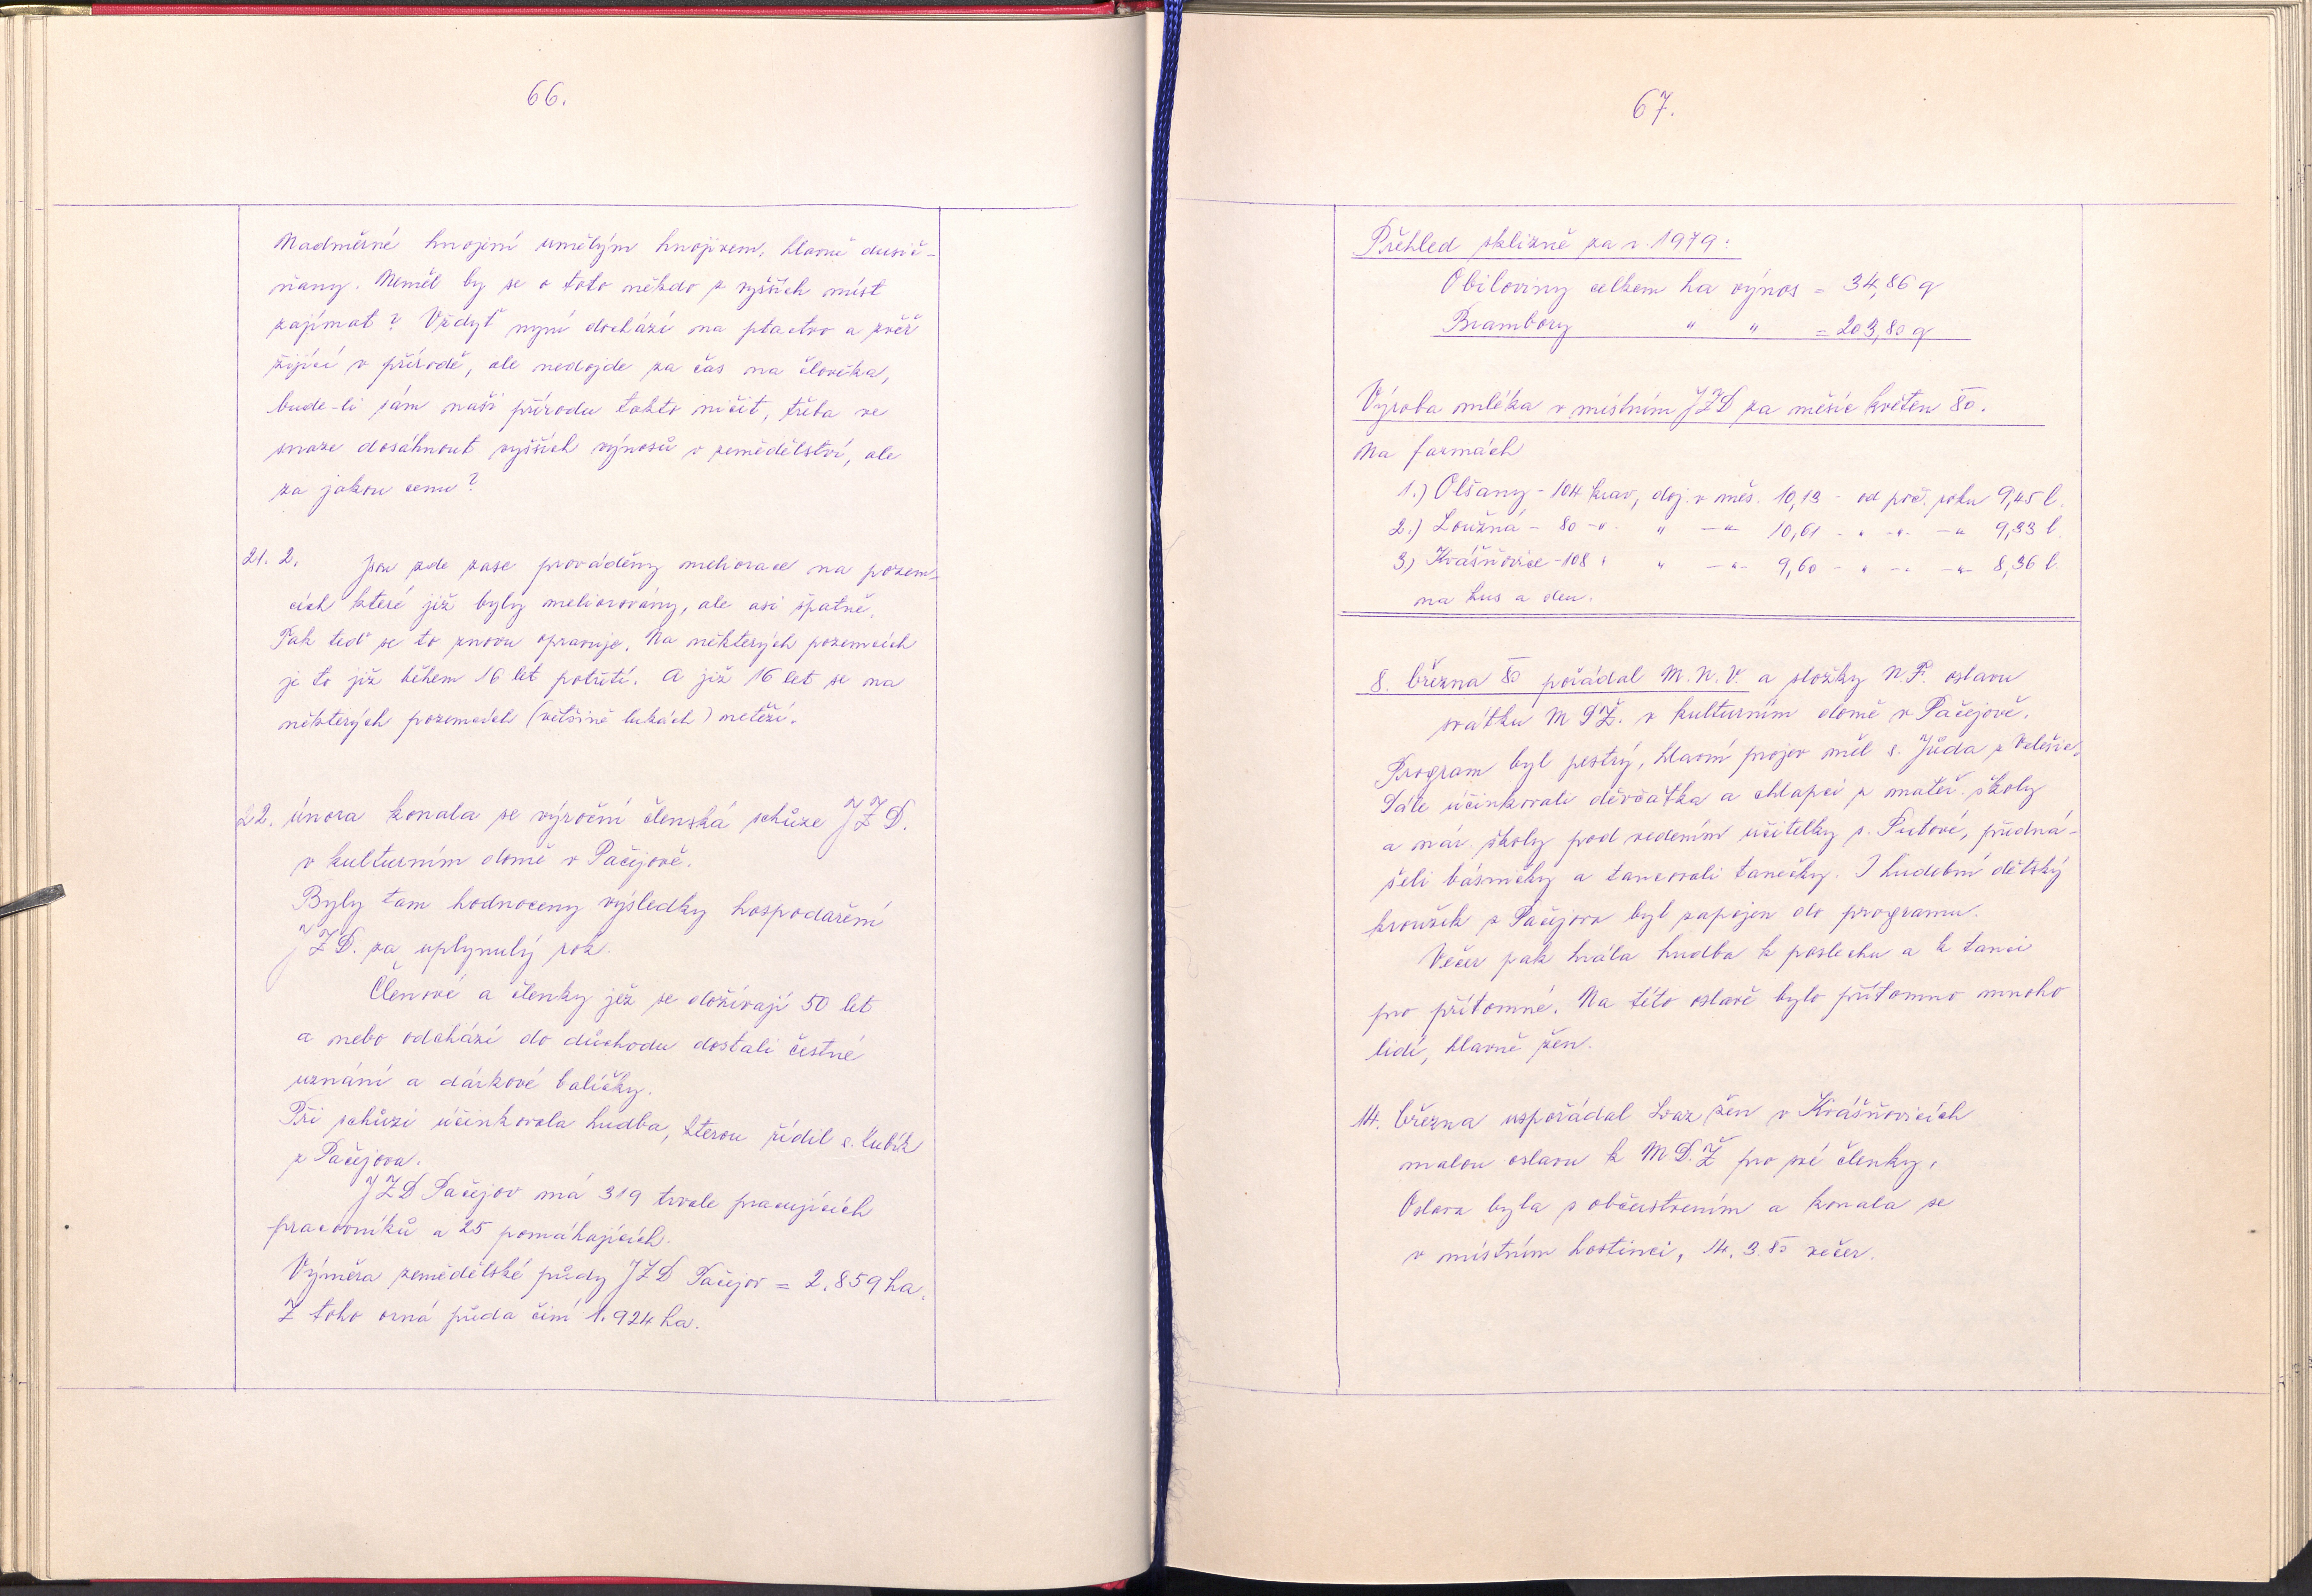 66.
Nadměrné hnojení umělým hnojivem, hlavně dusič-
ňany. Neměl by se o toto někdo z vyšších míst
zajímat? Vždyť nyní dochází na ptactvo a zvěř
žijící v přírodě, ale nedojde za čas na člověka,
bude-li sám naši přírodu takto ničit, třeba ve
snaze dosáhnout vyšších výnosů v zemědělství, ale
za jakou cenu?
21. 2. Jsou zde zase prováděny meliorace na pozem-
cích které již byly meliorovány, ale asi špatně.
Tak teď se to znovu opravuje. Na některých pozemcích
je to již během 16 let potřetí. A již 16 let se na
některých pozemcích (většině lukách) netěží.
22. února konala se výroční členská schůze JZD.
v kulturním domě v Pačejově.
Byly tam hodnoceny výsledky hospodaření
JZD. za uplynulý rok.
Členové a členky jež se dožívají 50 let
a nebo odchází do důchodu dostali čestné
uznání a dárkové balíčky.
Při schůzi účinkovala hudba, kterou řídil s. Kubík
z Pačejova.
JZD Pačejov má 319 trvale pracujících
pracovníků a 25 pomáhajících.
Výměra zemědělské půdy JZD Pačejov = 2.859 ha.
Z toho orná půda činí 1.924 ha.
67.
Přehled sklizně za r. 1979:
Obiloviny celkem ha výnos = 34,86 q
Brambory " " = 203,80 q
Výroba mléka v místním JZD za měsíc květen 80.
Na farmách
1.) Olšany - 104 krav, doj. v měs. 10,13 - od poč. roku 9,45 l.
2.) Loužná - 80 -"- " -"- 10,61 - " -"- -"- 9,33 l.
3.) Kvášňovice - 108 " " -"- 9,60 - " -"- -"- 8,36 l.
na kus a den.
8. března 80 pořádal M.N.V. a složky N.F. oslavu
svátku MDŽ. v kulturním domě v Pačejově.
Program byl pestrý, hlavní projev měl s. Jůda z Velešic.
Dále účinkovali děvčátka a chlapci z mateř. školy
a nár. školy pod vedením učitelky s. Putové, předná-
šeli básničky a tancovali tanečky. I hudební dětský
kroužek z Pačejova byl zapojen do programu.
Večer pak hrála hudba k poslechu a k tanci
pro přítomné. Na této oslavě bylo přítomno mnoho
lidí, hlavně žen.
14. března uspořádal svaz žen v Kvášňovicích
malou oslavu k MD.Ž pro své členky.
Oslava byla s občerstvením a konala se
v místním hostinci, 14. 3. 80 večer.